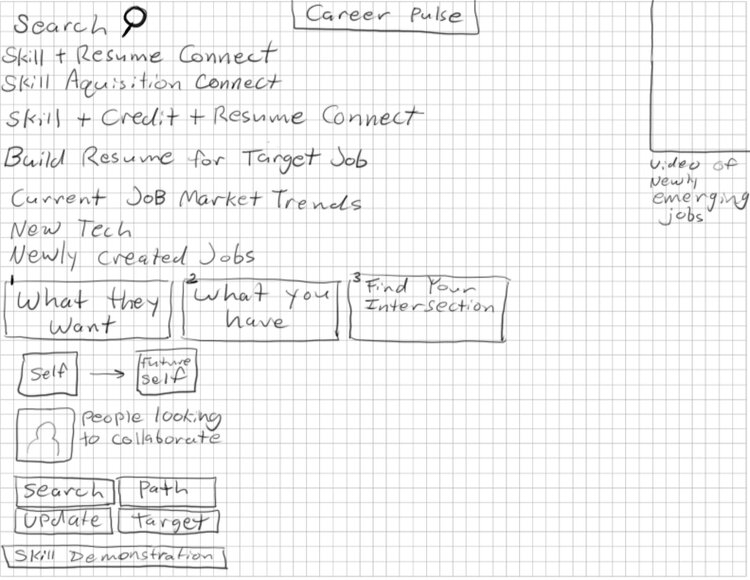 Career Pulse
Search
Skill + Resume Connect
Skill Aquisition Connect
Skill + Credit + Resume Connect
Build Resume for Target Job
Current Job Market Trends
New Tech
Newly created Jobs
video of
newly
emerging
jobs
1
What they
want
2
What you
have
3
Find Your
Intersection
Self
future
self
people looking
to collaborate
Search
Path
Update
Target
Skill Demonstration